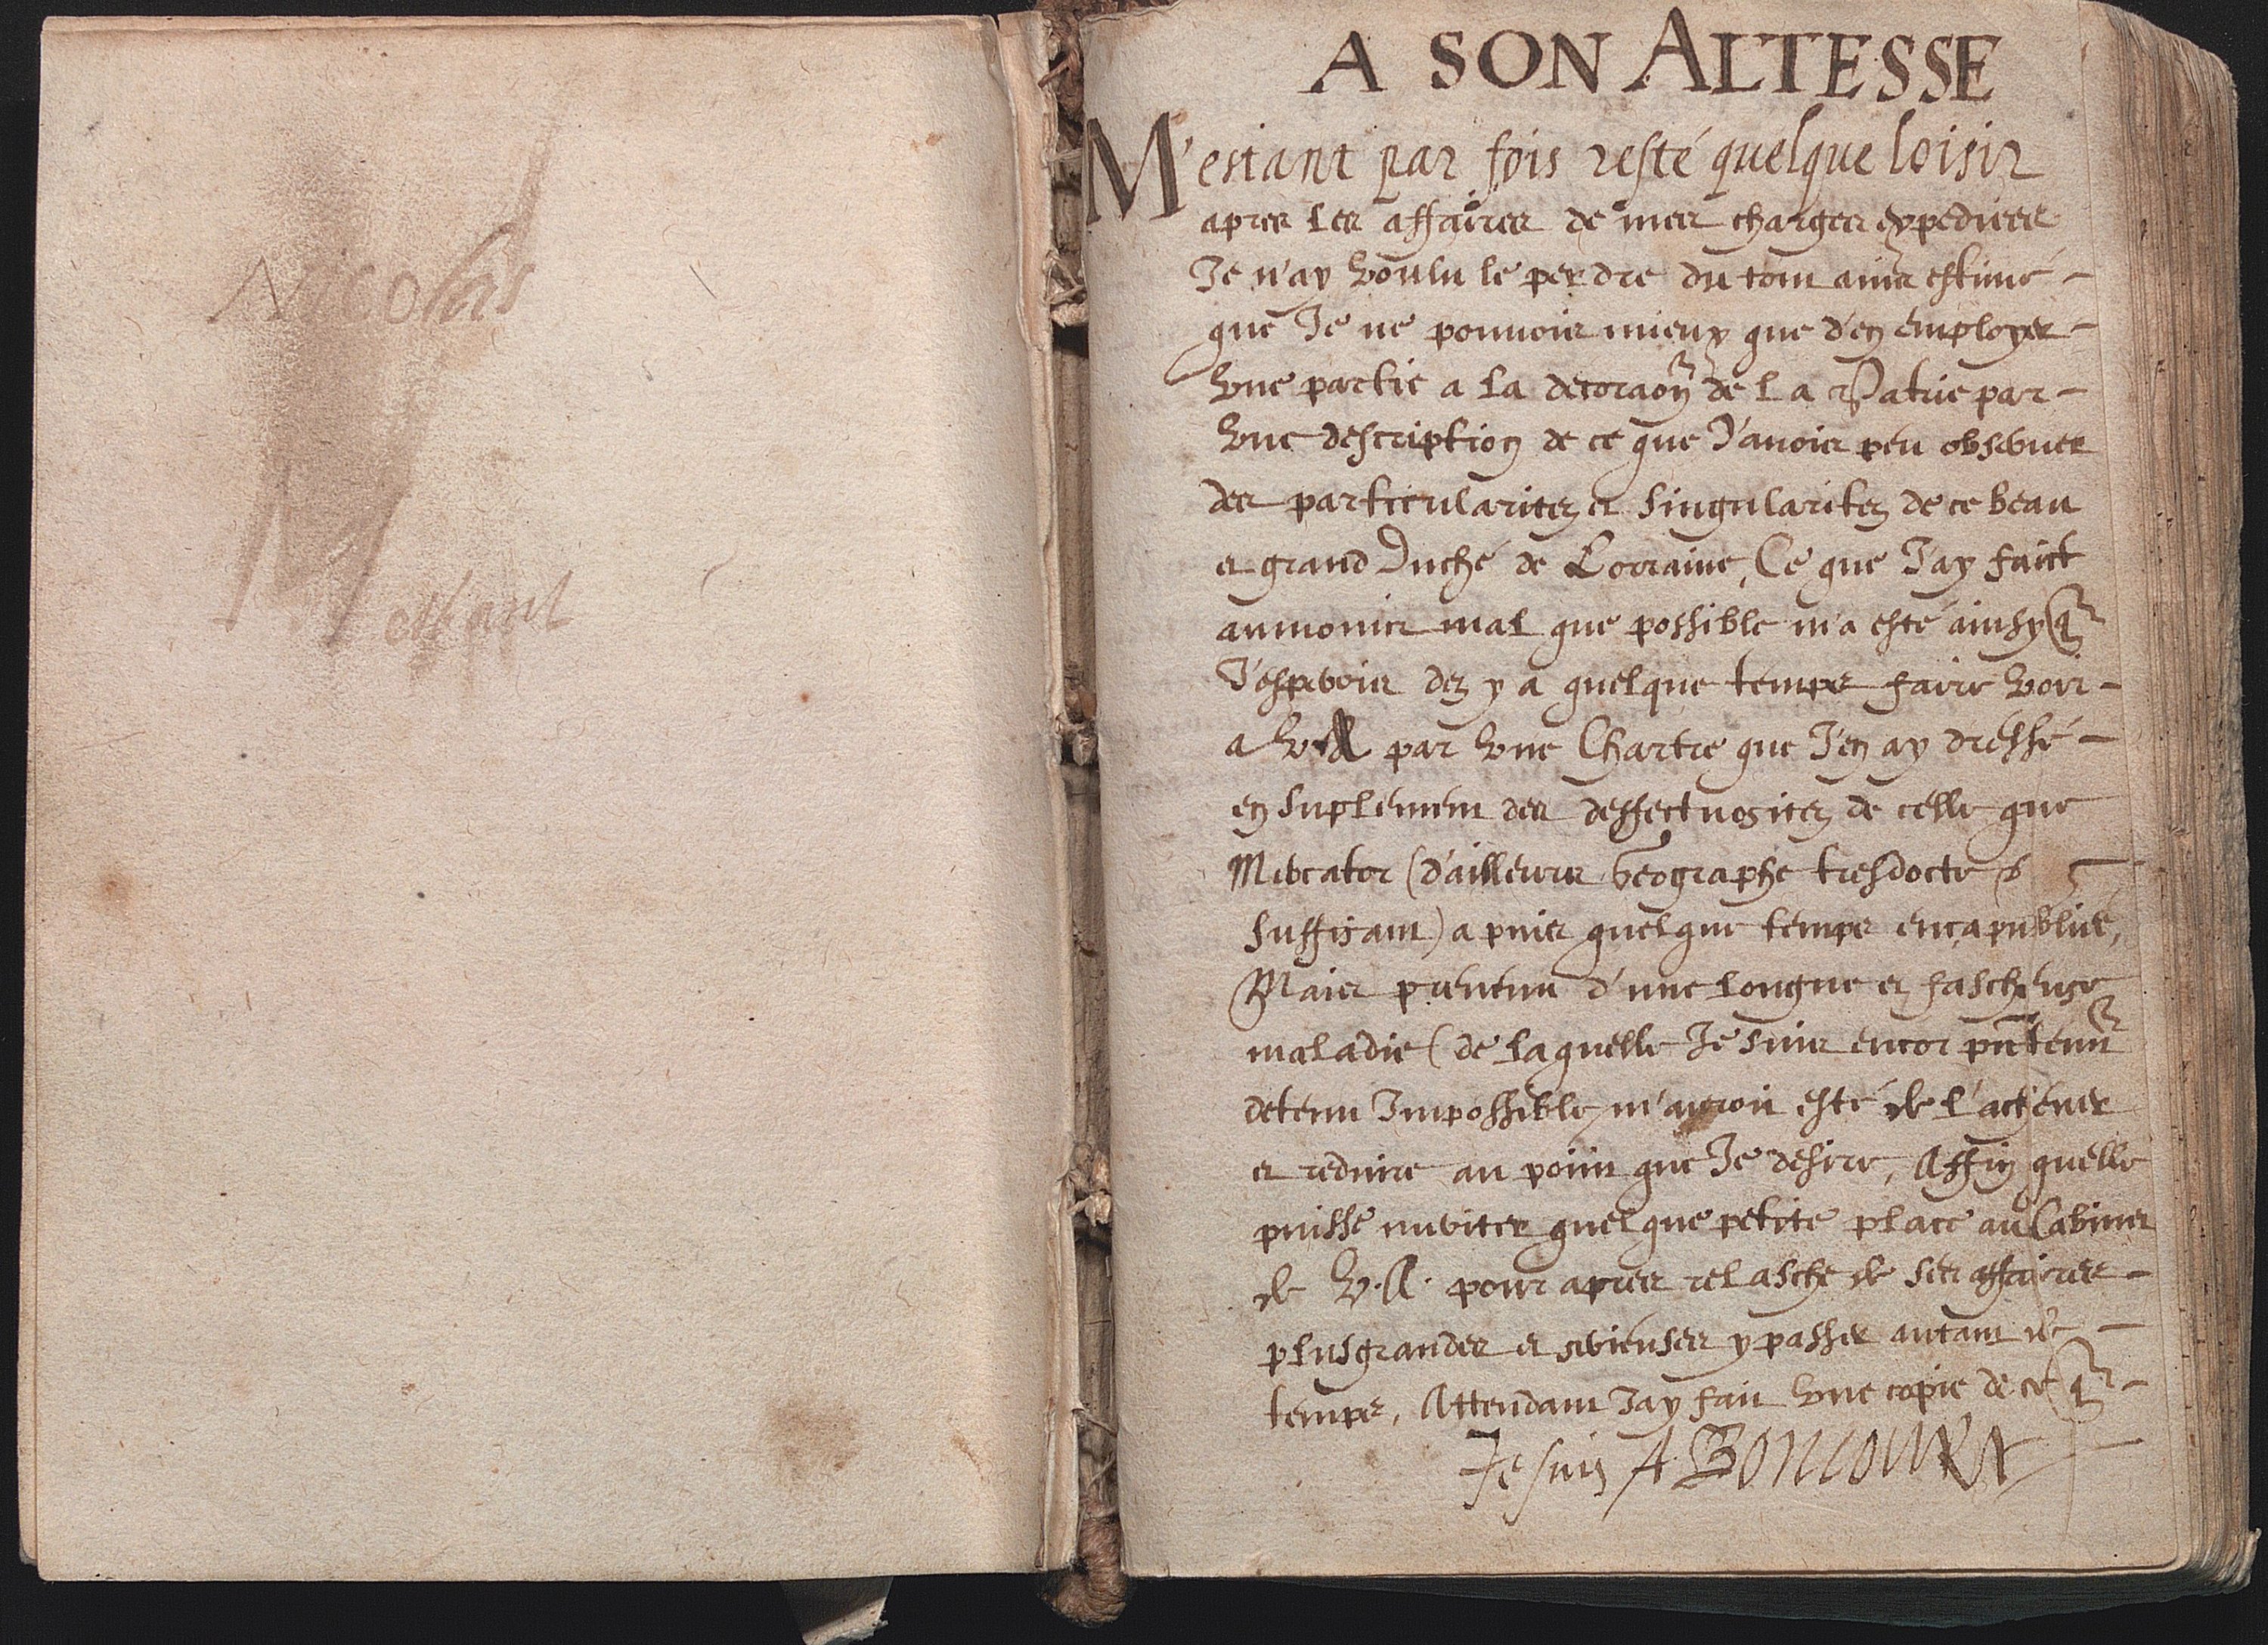 Nicolas
M
estant
A SON ALTESSE
M'estant par fois resté quelque loisir
apres les affaires de mes charges expediees
Je n'ay voulu le perdre du tout ains estimé
que Je ne pouuois mieux que d'en employer
vne partie a la decoraon de la Patrie par
vne description de ce que J'auois peu obseruer
des particularitez et singularitez de ce beau
et grand Duché de Lorraine, Ce que J'ay faict
aumoins mal que possible m'a esté ainsy q
J'esperois dez y a quelque temps faire voir
a V.A par vne Chartre que J'en ay dressé
en suplement des deffectuositez de celle que
Mercator (d'ailleurs Geographe tresdocte &
suffisant) a puis quelque temps ença publiée,
Mais preuenu d'une longue et fascheuse
maladie (de laquelle Je suis encor pntemt
detenu Impossible m'auroit esté de l'acheuer
et reduire au point que Je desire, Affin quelle
puisse meriter quelque petite place au Cabinet
de V.A. pour apres relasche de ses affaires
plusgrandes et serieuses y passer autant de
temps, Attendant J'ay fait vne copie de ce q
Je suis A BONCOURT